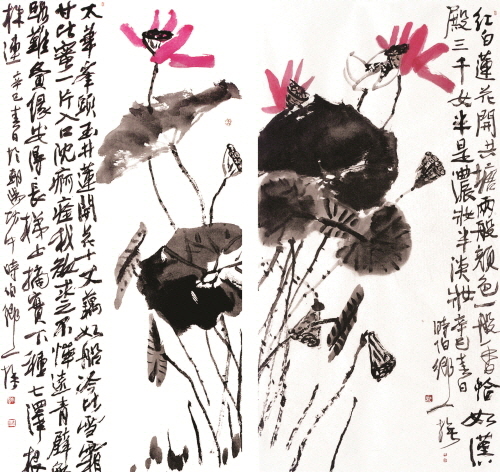 红白蓮花開共塘兩般顏色一般香恰如漢
殿三千女半是濃妝半淡妝辛巳春日
時伯鄉一揮
太華峯頭玉井蓮開花十丈藕如船冷比雪霜
甘比蜜一片入口沈痾痊我欲求之不憚遠青壁無
路難夤緣安得長梯上摘實下種七澤根
株連 辛巳春日於朝陽坊 時伯鄉一揮